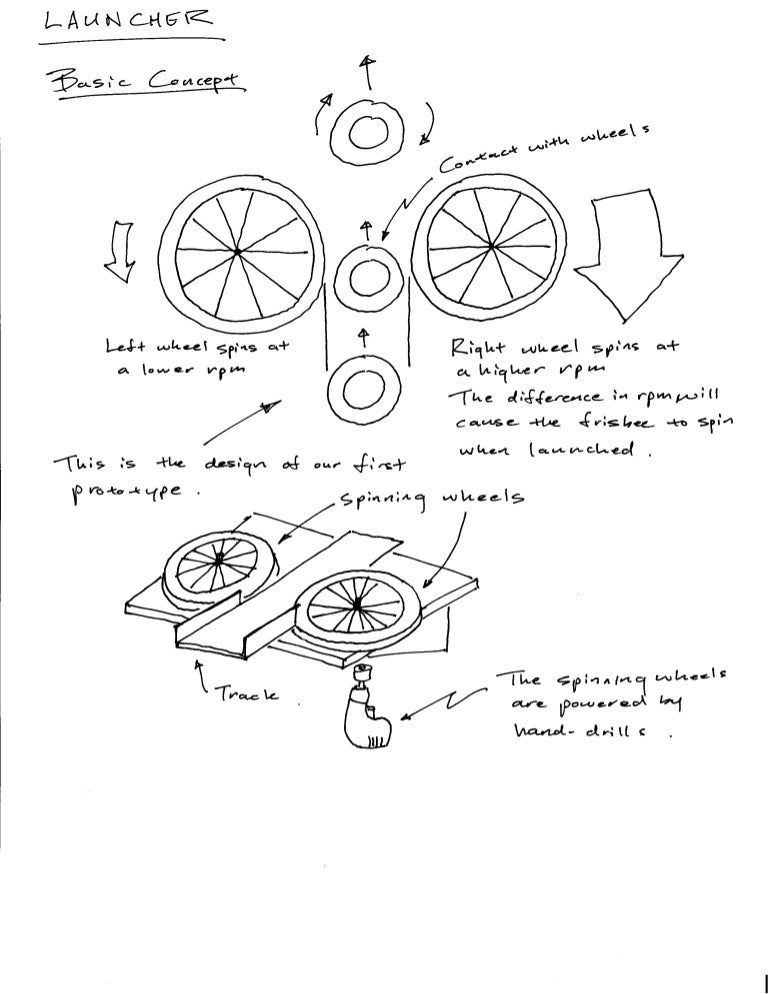 LAUNCHER
Basic Concept
Contact with wheels
Left wheel spins at
a lower rpm
Right wheel spins at
a higher rpm
The difference in rpm will
cause the frisbee to spin
when launched.
This is the design of our first
prototype.
Spinning wheels
Track.
The spinning wheels
are powered by
hand-drills.